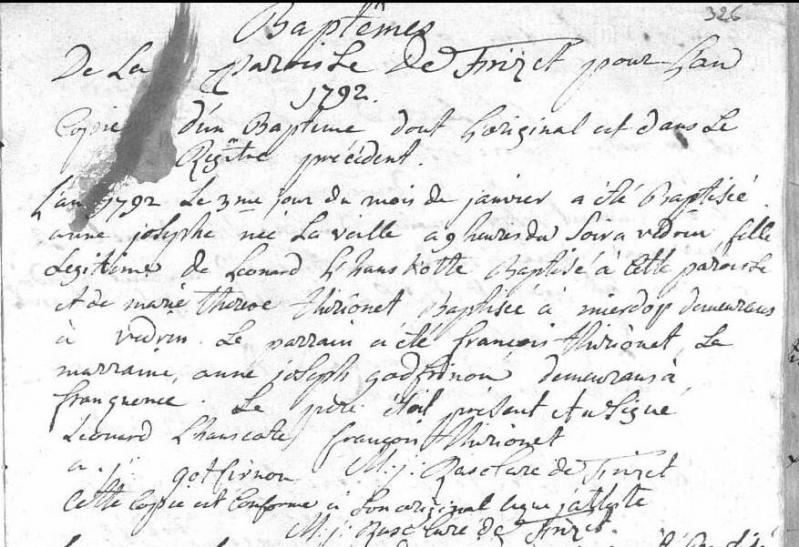 326
Baptêmes
De La paroisse de Frizet pour L'an
1792.
Copie d'un Baptême dont L'original est dans Le
Régitre précédent.
L'an 1792 Le 3me jour du mois de janvier a été Baptisée
anne josephe née La veille a 9 heures du Soir a vedrin fille
Légitime de Leonard Baptisé à Cette paroisse
et de marie therese thirionet Baptisée à mierdop demeurans
à vedrin. Le parrain a été françois thirionet, La
marraine, anne joseph godfrinon demeurans à
franquenée. Le père étoit présent et a signé
Leonard Lhanscote françois thirionet
a. j. gotfirnon M. j. curé de Frizet
Cette Copie est Conforme à Son original Ce que j'atteste
M. j. curé de Frizet.